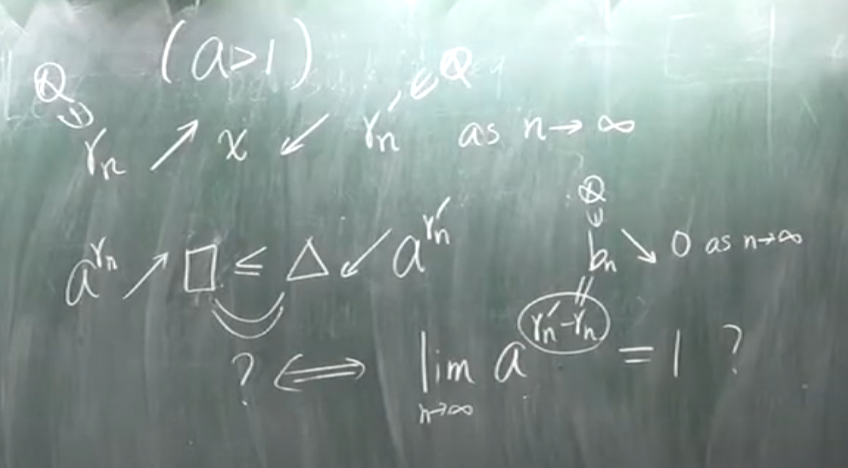 (a>1)
ℚ ∋ rₙ ↗ x ↙ rₙ′ ∈ ℚ as n→∞
a^{rₙ} ↗ □ ≤ △ ↙ a^{rₙ′}
ℚ ∋ bₙ ↘ 0 as n→∞
? ⟺ lim_{n→∞} a^{rₙ′−rₙ} = 1 ?